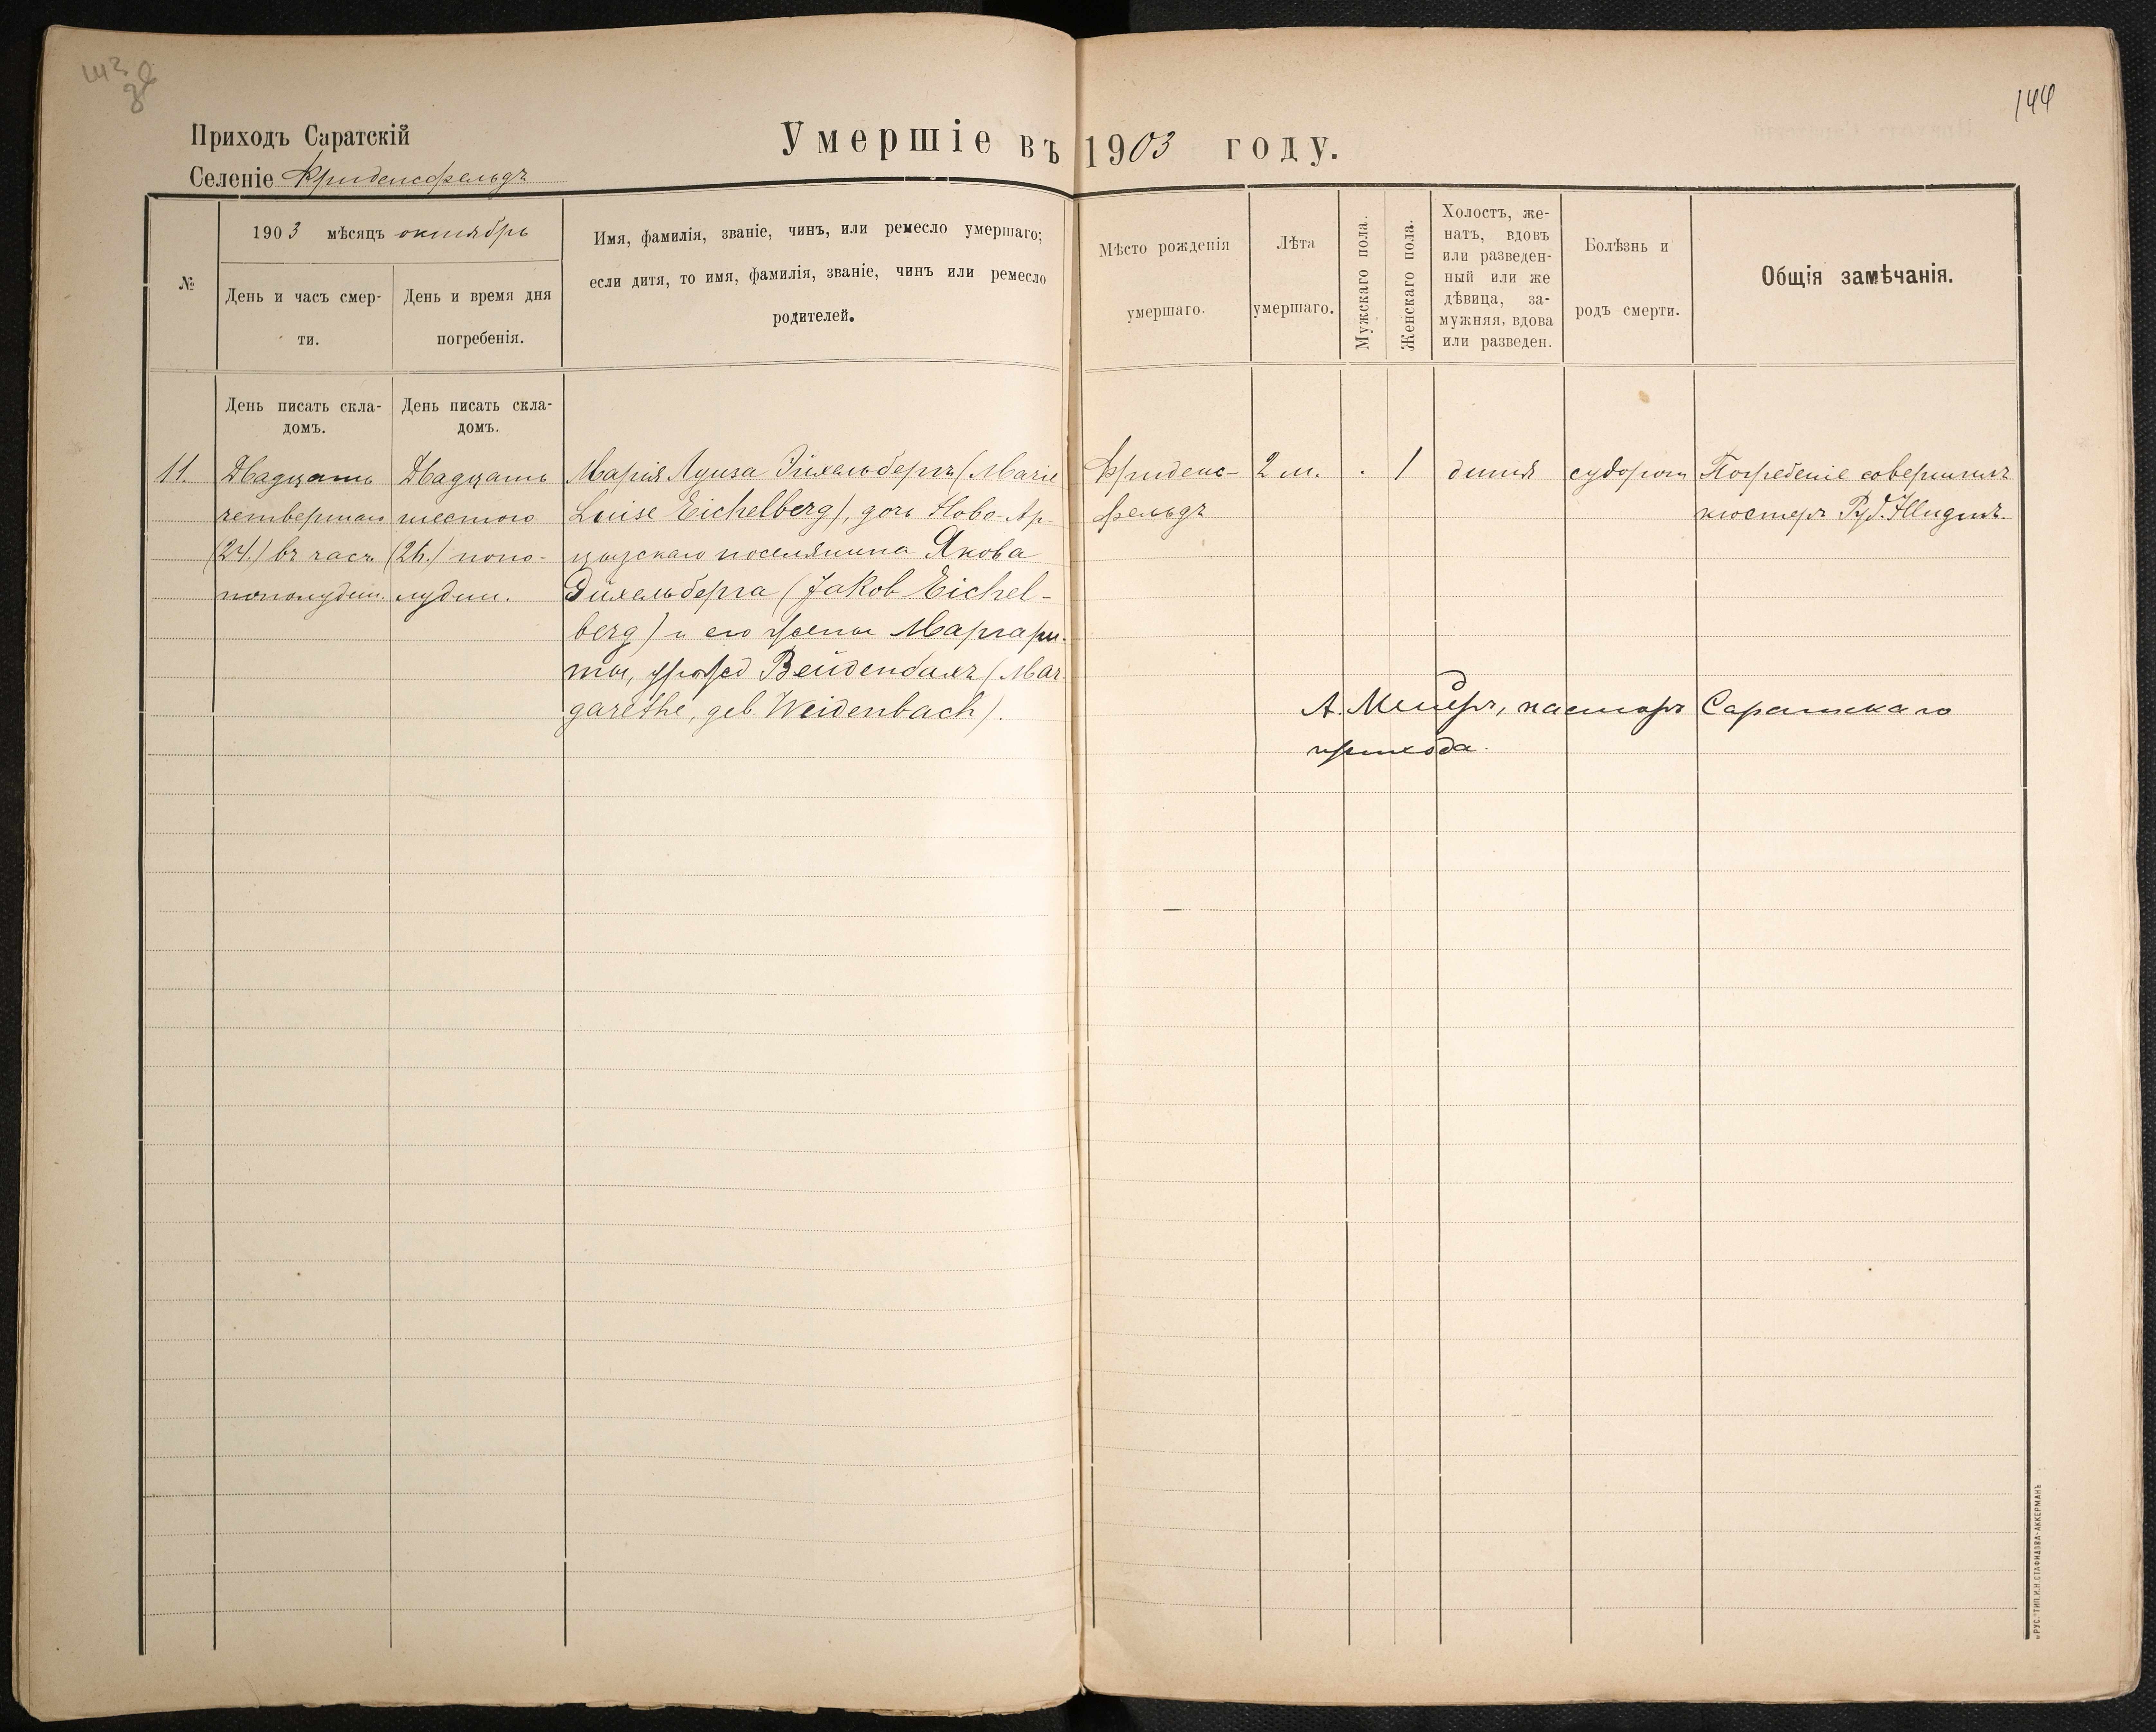 144
Приходъ Саратскій
Селеніе Фриденсфельдъ
Умершіе въ 1903 году.
№
1903 мѣсяцъ октябрь
День и часъ смер-
ти.
День и время дня
погребенія.
Имя, фамилія, званіе, чинъ, или ремесло умершаго;
если дитя, то имя, фамилія, званіе, чинъ или ремесло
родителей.
Мѣсто рожденія
умершаго.
Лѣта
умершаго.
Мужскаго пола.
Женскаго пола.
Холостъ, же-
натъ, вдовъ
или разведен-
ный или же
дѣвица, за-
мужняя, вдова
или разведен.
Болѣзнь и
родъ смерти.
Общія замѣчанія.
День писать скла-
домъ.
День писать скла-
домъ.
11.
Двадцать
четвертаго
(24.) въ часъ
пополудни.
Двадцать
шестого
(26.) попо-
лудни.
Марія Луиза Эйхельбергъ (Marie
Luise Eichelberg), дочь Ново Ар-
цызскаго поселянина Якова
Эйхельберга (Jakob Eichel-
berg) и его жены Маргари-
ты, урожд Вейденбахъ (Mar-
garethe, geb Weidenbach).
Фриденс-
фельдъ
2 м.
.
1
дитя
судорги
Погребеніе совершилъ
кюстеръ Руд.
А. Мейеръ, пасторъ Саратскаго
прихода.
„РУС.“ ТИП. И.Н. СТАФИДОВА-АККЕРМАНЪ